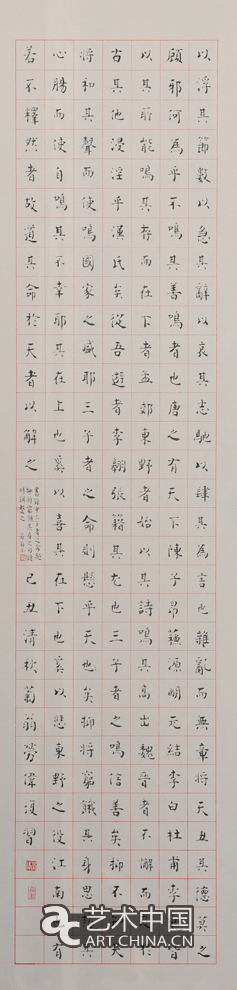 以浮其節數以急其辭以哀其志馳以肆其為言也雜亂而無章將天丑其德莫之
顧邪何為乎不鳴其善鳴者也唐之有天下陳子昂蘇源明元結李白杜甫李
以其所能鳴其存而在下者孟郊東野者始以其詩鳴其高出魏晉者不解而於
古其他浸淫乎漢氏矣從吾遊者李翱張籍其尤也三子者之鳴信善矣抑不天
將和其聲而使鳴國家之盛耶三子者之命則懸乎天也矣抑將窮餓其身思其
心腸而使自鳴其不幸耶其在上也奚以喜其在下也奚以悲東野之役江南有
若不釋然者故道其命於天者以解之
己丑清秋菊翁勞偉復習
艺术中国
ART.CHINA.CN